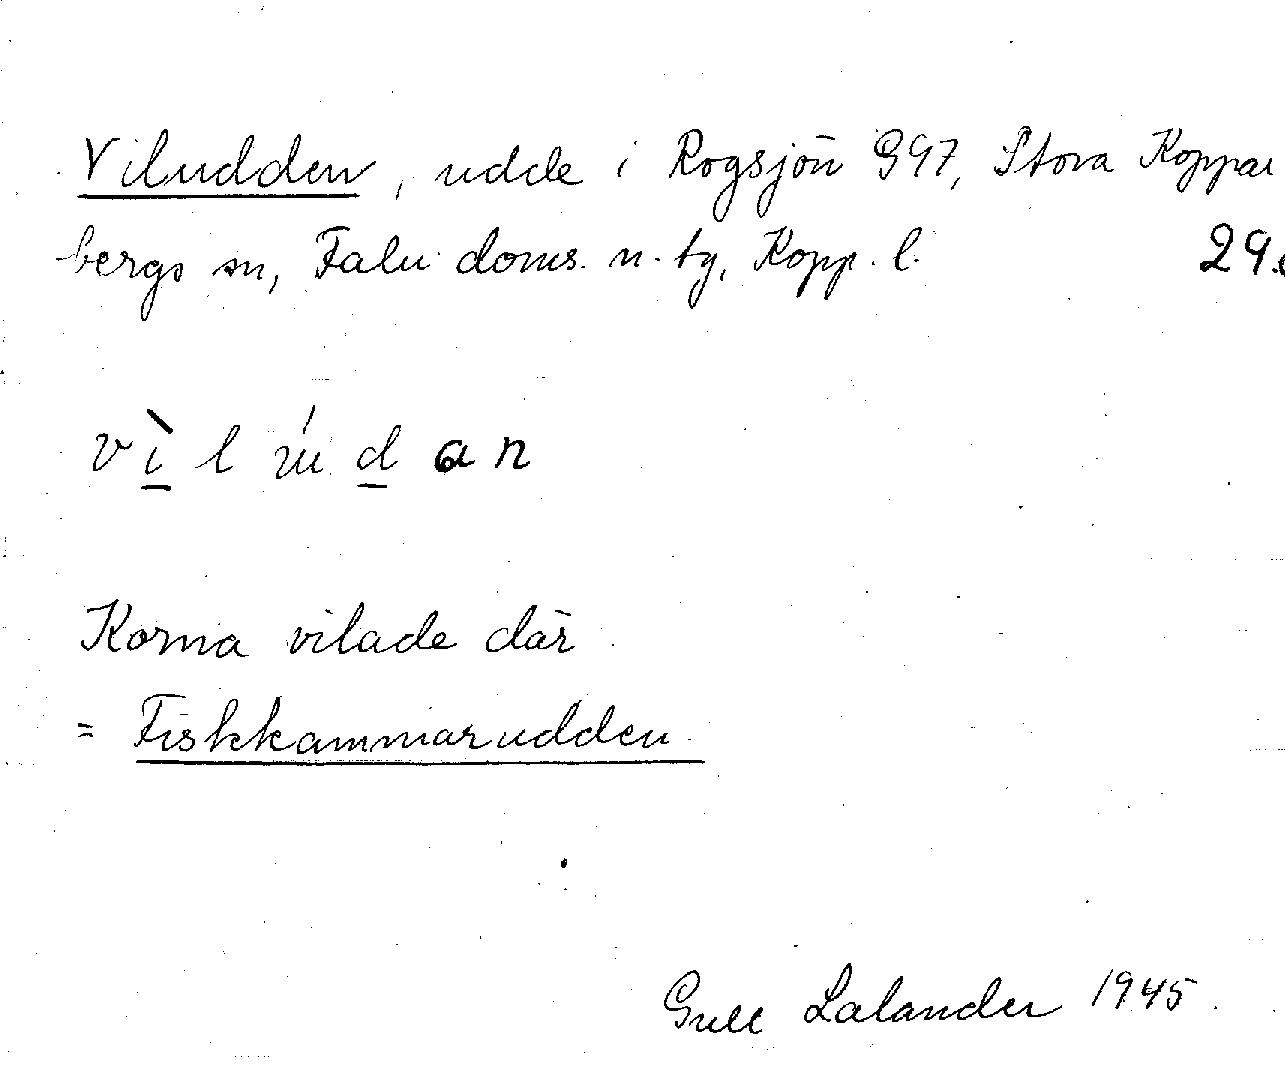 Viludden, udde i Rogsjön 997, Stora Koppar
bergs sn, Falu doms. n. tg, Kopp. l. 29.
vìlúdan
Korna vilade där
= Fiskkammarudden
Gull Lalander 1945.